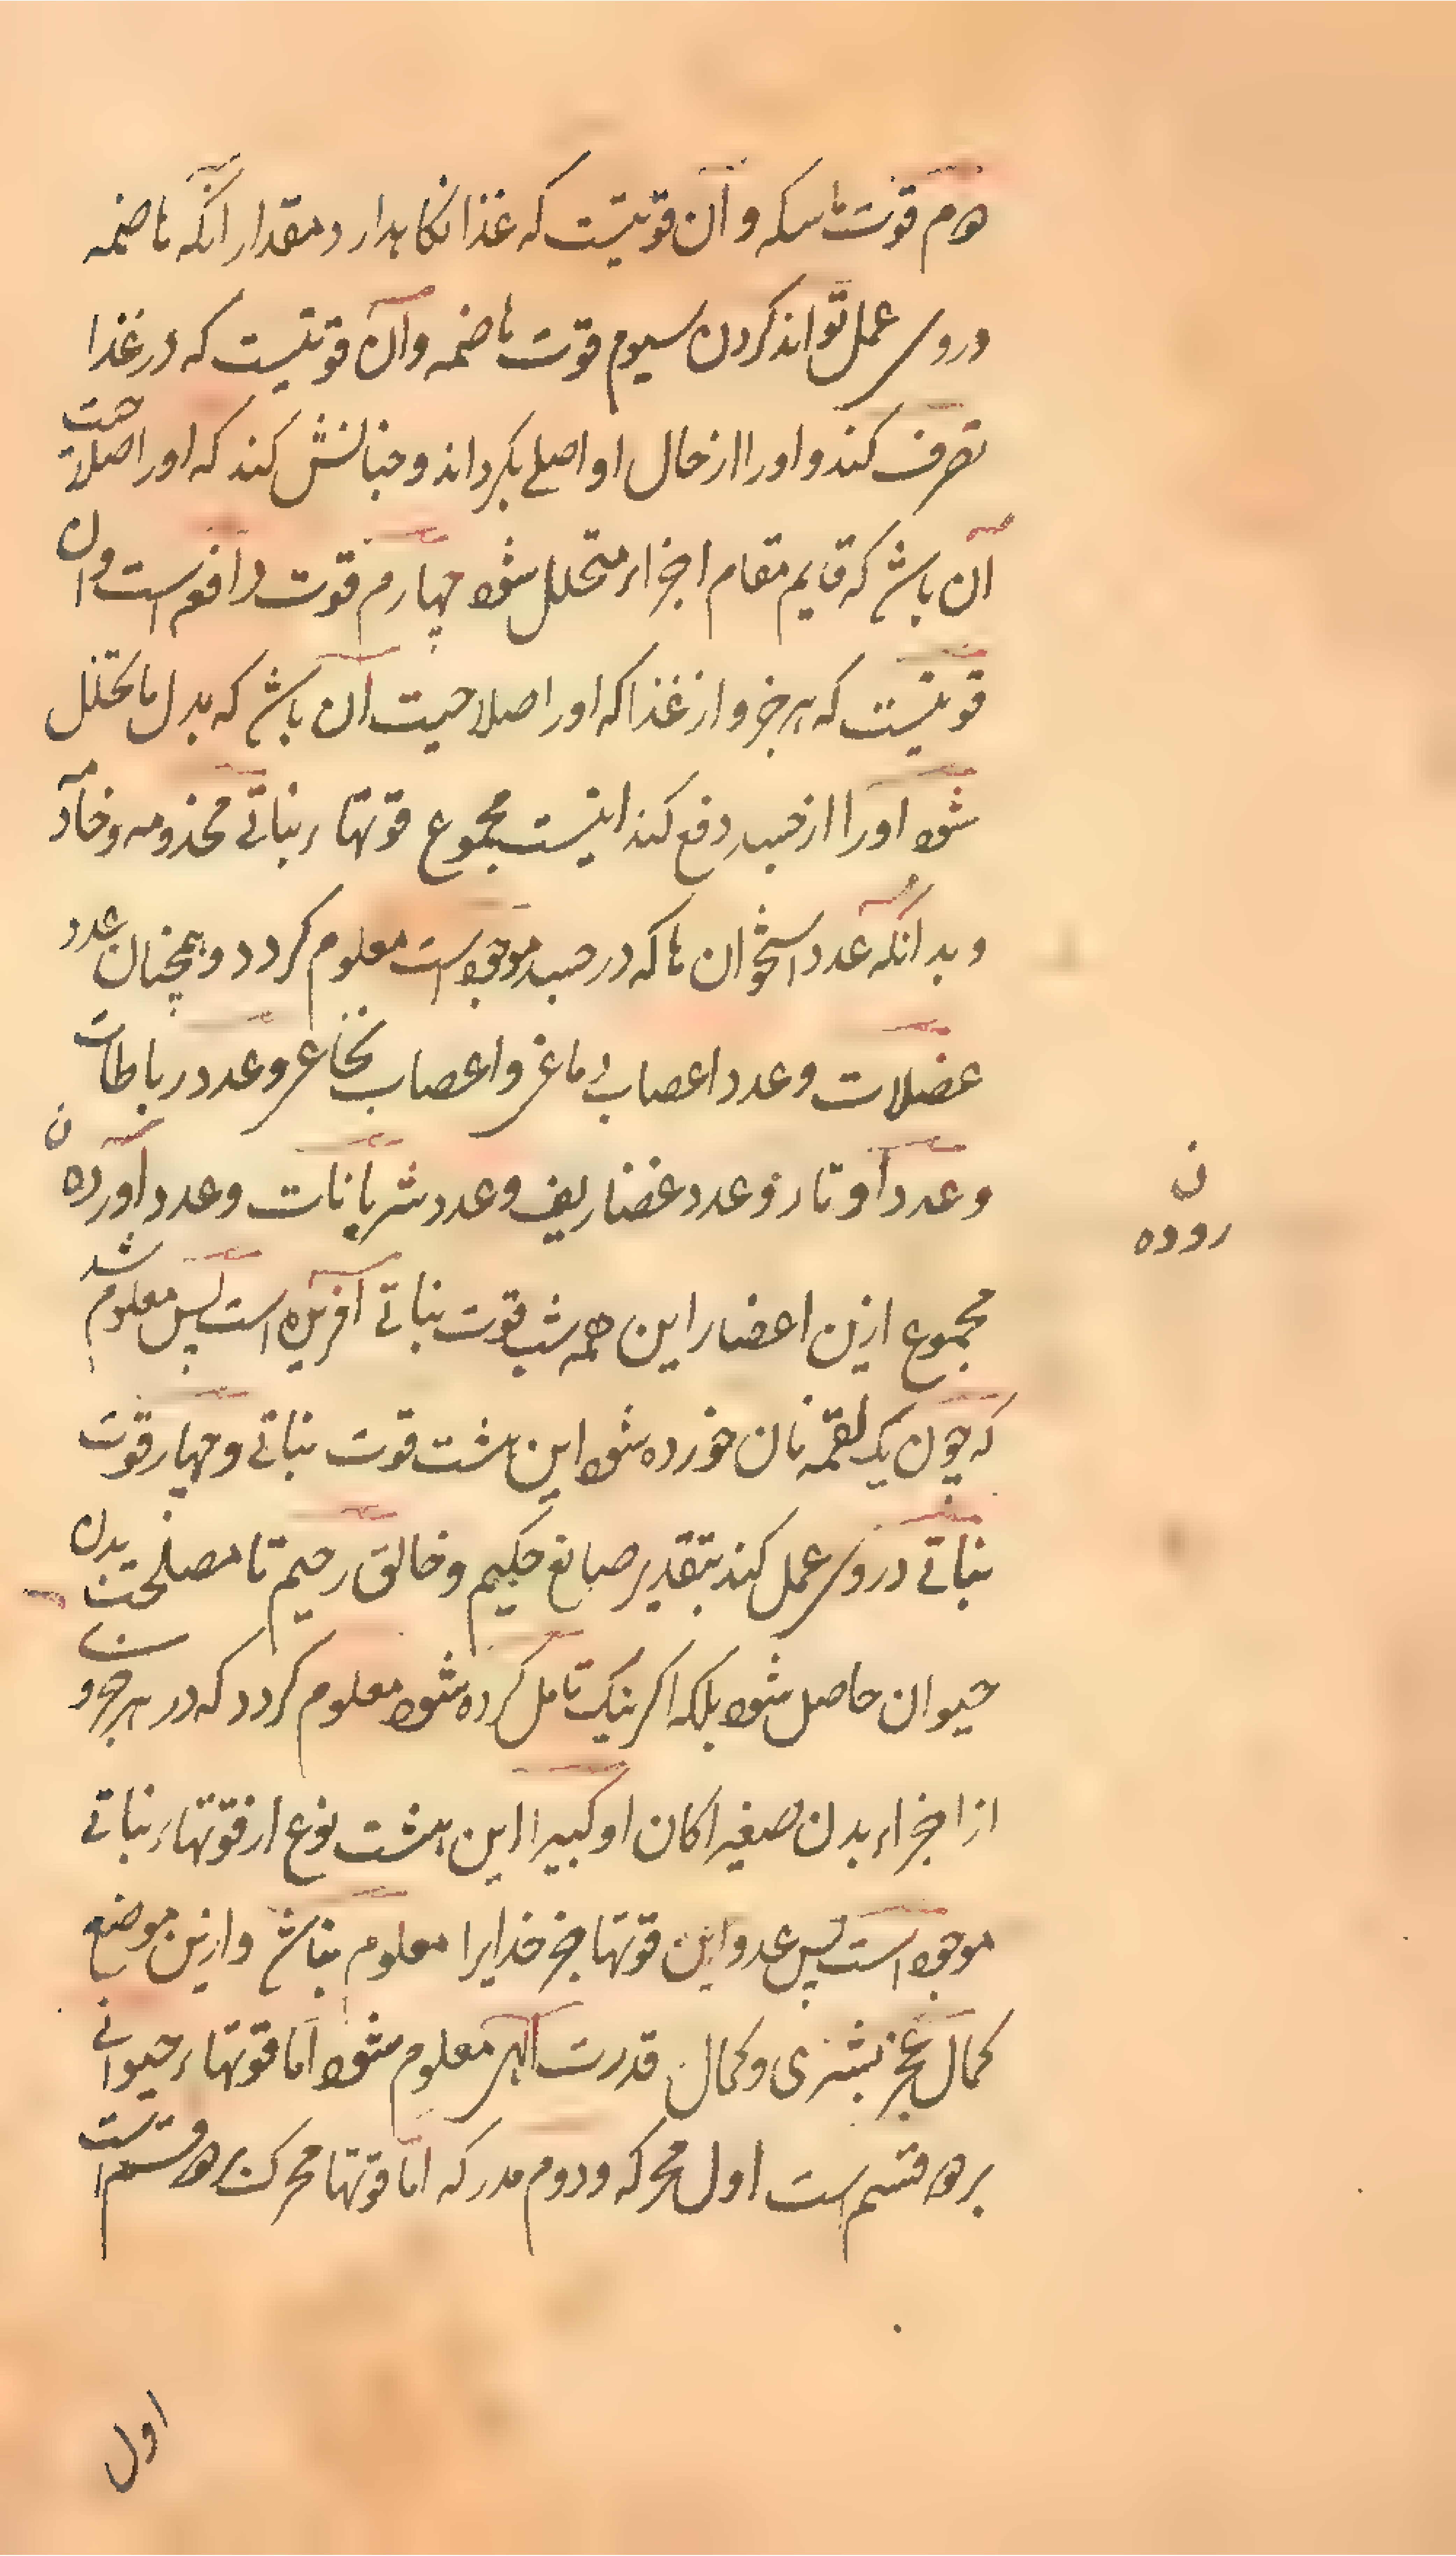 دوم قوت ماسکه و آن قوتیست که غذا نکاهدارد مقدار آنکه هاضمه
دروی عمل تواند کردن سیوم قوت هاضمه و آن قوتیست که در غذا
تصرف کند و اورا از حال او اصلی بکرداند و چنانش کند که اورا صلاحیت
آن باشد که قایم مقام اجزاء متحلل شود چهارم قوت دافعه است و آن
قوتیست که هر جزو از غذا که اورا صلاحیت آن باشد که بدل ما یتحلل
شود اورا از جسد دفع کند اینست مجموع قوتهاء نباتی مخدومه و خادمه
و بدانکه عدد استخوان ها که در جسد موجود است معلوم کردد و همچنان عدد
عضلات و عدد اعصاب دماغی و اعصاب نخاعی و عدد رباطات
و عدد اوتار و عدد غضاریف و عدد شریانات و عدد اورده ن
ن
روده
مجموع ازین اعضا را این همه شب قوت نباتی آفریده است پس معلوم شد
که چون یک لقمه نان خورده شود این هشت قوت نباتی و چهار قوت
نباتی دروی عمل کند بتقدیر صانع حکیم و خالق رحیم تا مصلحت بدن
حیوان حاصل شود بلکه اکر نیک تامل کرده شود معلوم کردد که در هر جزو
از اجزاء بدن صغیرا کان او کبیرا این هشت نوع از قوتهاء نباتی
موجود است پس عدد این قوتها جز خدایرا معلوم نباشد و ازین موضع
کمال عجز بشری و کمال قدرت الهی معلوم شود اما قوتهاء حیوانی
بر دو قسم است اول محرکه و دوم مدرکه اما قوتها محرک بر دو قسم است
اول